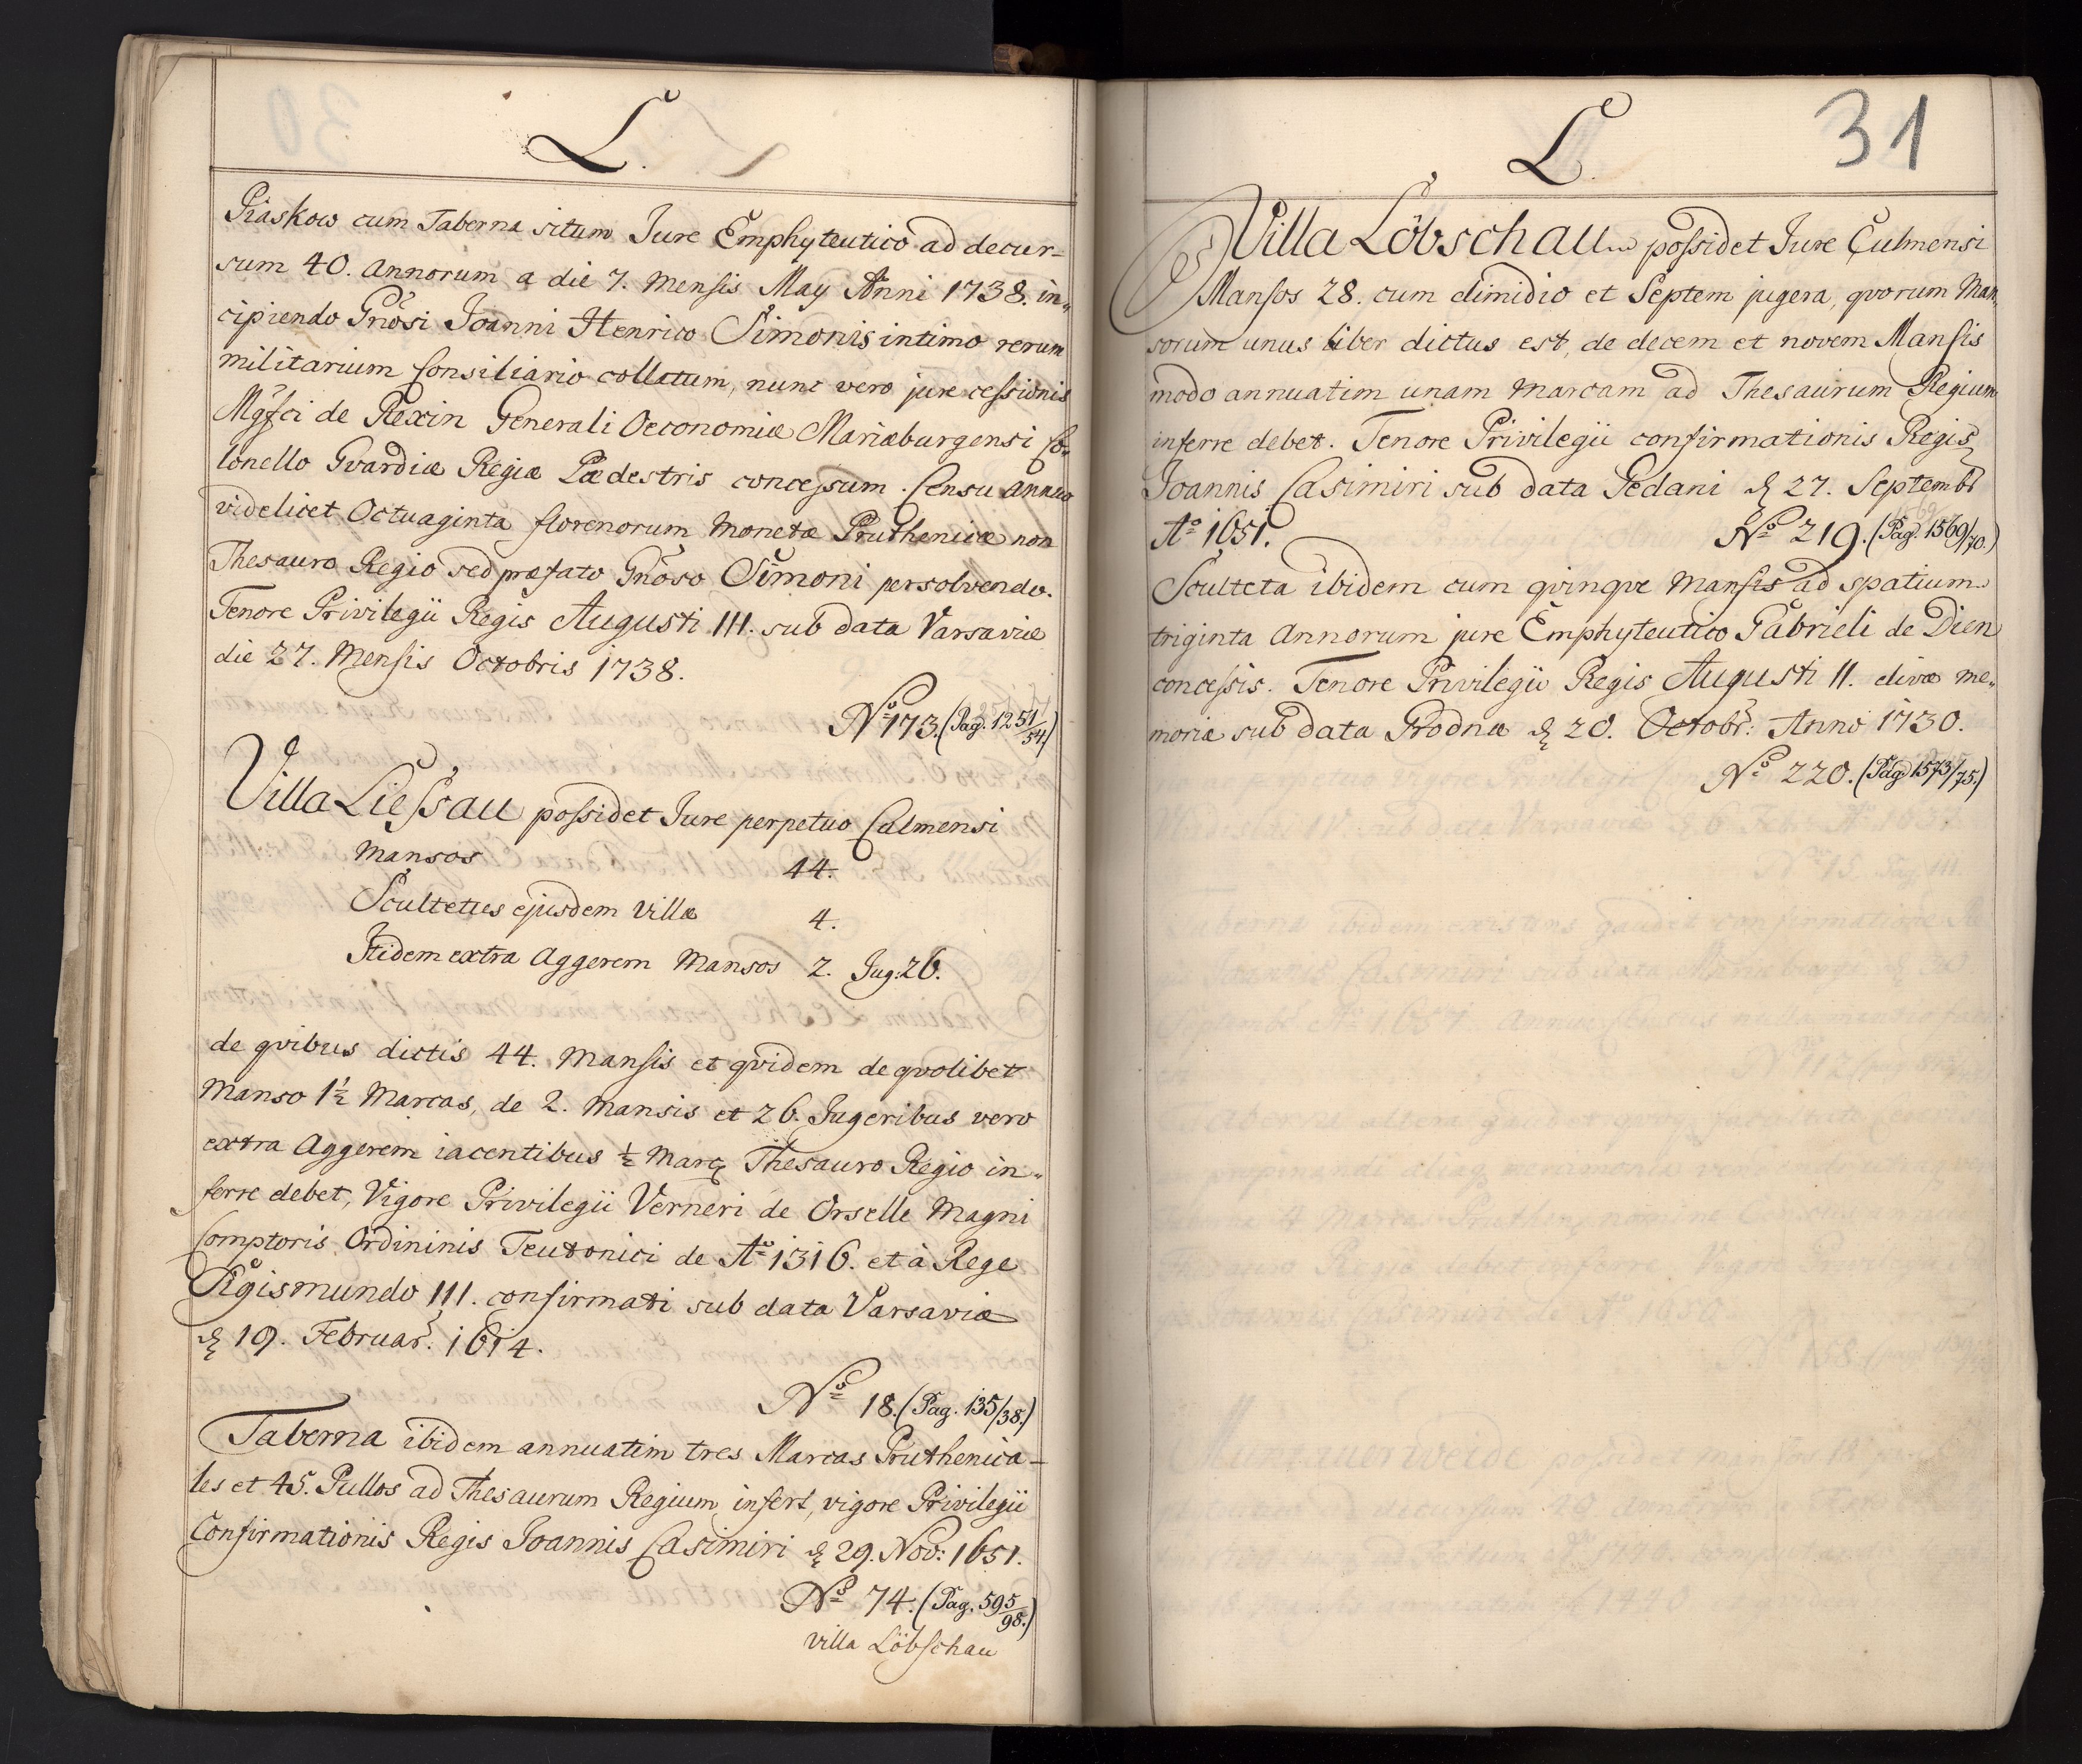 L.
Piaskow cum Taberna situm Jure Emphyteutico ad decur-
sum 40. Annorum a die 7. Mensis May Anni 1738. in„
cipiendo Gnosi Joanni Henrico Simonis intimo rerum
militarium Consiliario collatum, nunc vero jure cessionis
Mgfci de Rexin Generali Oeconomiæ Mariæburgensi Co„
lonello Gvardiæ Regiæ Pædestris concessum. Censu annuo
videlicet Octuaginta florenorum Monetæ Pruthenicæ non
Thesauro Regio sed præfato Gnoso Simoni persolvendo.
Tenore Privilegii Regis Augusti III. sub data Varsaviæ
die 27. Mensis Octobris 1738.
No 173. (Pag. 1251/54.)
Villa Liessau possidet Jure perpetuo Culmensi
Mansos 44.
Scultetus ejusdem Villæ 4.
Itidem extra Aggerem Mansos 2. Jug: 26.
de qvibus dictis 44. Mansis et qvidem de qvolibet
Manso 1½ Marcas, de 2. Mansis et 26. Jugeribus vero
extra Aggerem iacentibus ½ Marcę Thesauro Regio in„
ferre debet, Vigore Privilegii Verneri de Orselle Magni
Comptoris Ordininis Teutonici de Ao 1316. et à Rege
Sigismundo III. confirmati sub data Varsaviæ
d 19. Februar. 1614.
No 18. (Pag. 135/38.)
Taberna ibidem annuatim tres Marcas Pruthenica-
les et 45. Pullos ad Thesaurum Regium infert, vigore Privilegii
Confirmationis Regis Joannis Casimiri d 29. Nov: 1651.
No 74. (Pag. 595/98.)
villa Löbschau
L.
31
Villa Löbschau possidet Jure Culmensi
Mansos 28. cum dimidio et Septem jugera, qvorum Man„
sorum unus liber dictus est, de decem et novem Mansis
modo annuatim unam Marcam ad Thesaurum Regium
inferre debet. Tenore Privilegii confirmationis Regis
Joannis Casimiri sub data Gedani d 27. Septembr
Ao 1651. No 219. (Pag. 1569/70.)
Scultetia ibidem cum qvinqve Mansis ad spatium
triginta Annorum jure Emphyteutico Gabrieli de Dien
concessis. Tenore Privilegii Regis Augusti II. divæ me„
moriæ sub data Grodnæ d 20. Octobr: Anno 1730.
No 220. (Pag 1573/75.)